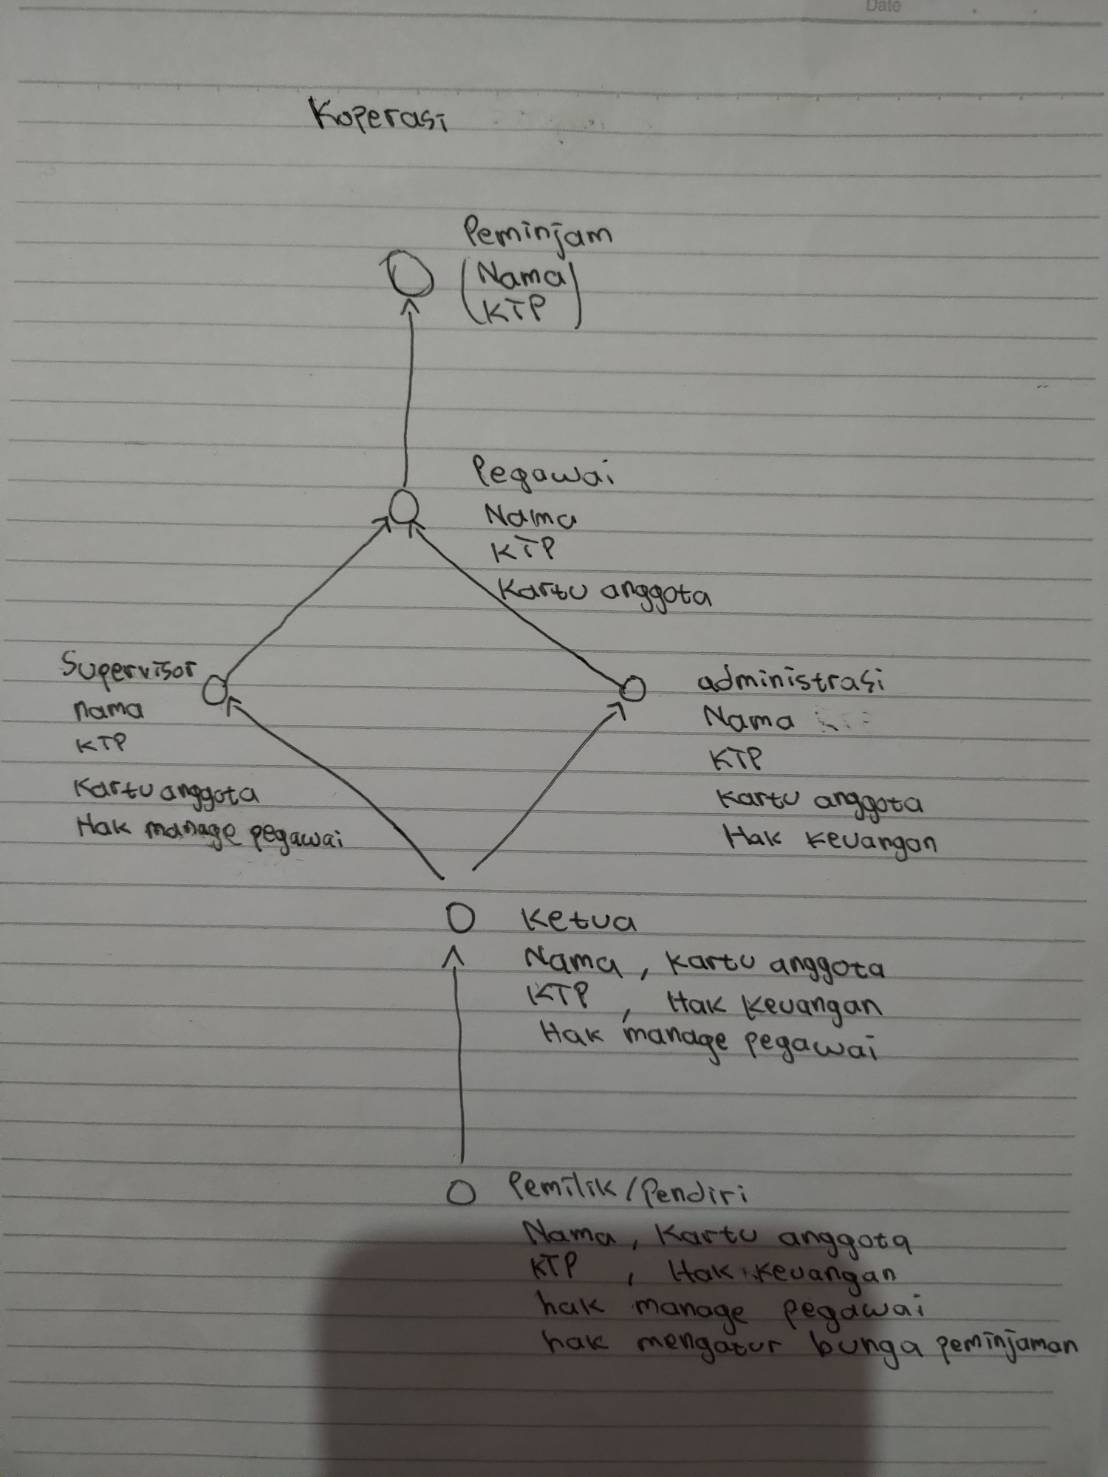 Date
Koperasi
Peminjam
(Nama)
(KTP)
Pegawai
Nama
KTP
Kartu anggota
Supervisor
nama
KTP
Kartu anggota
Hak manage pegawai
administrasi
Nama
KTP
Kartu anggota
Hak keuangan
Ketua
Nama, Kartu anggota
KTP, Hak Keuangan
Hak manage pegawai
Pemilik/Pendiri
Nama, Kartu anggota
KTP, Hak keuangan
hak manage pegawai
hak mengatur bunga peminjaman